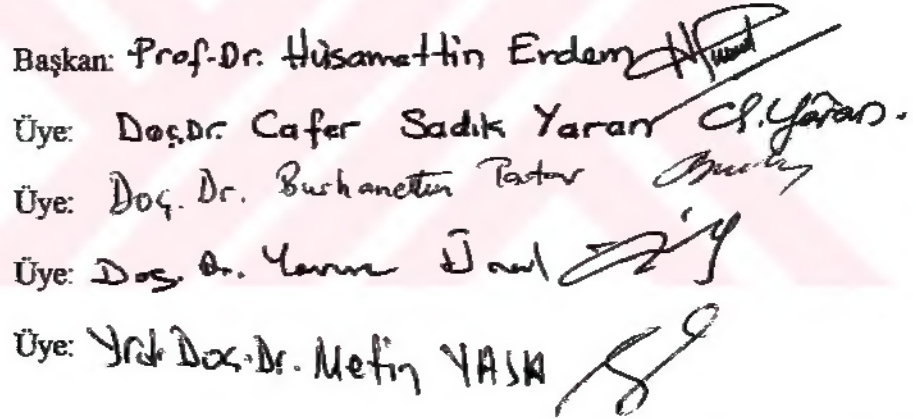 Başkan: Prof.Dr. Hüsamettin Erdem
Üye: Doç.Dr. Cafer Sadık Yaran C.S.Yaran.
Üye: Doç. Dr. Burhanettin Tatar
Üye: Doç. Dr. Yavuz Ünal
Üye: Yrd. Doç. Dr. Metin YASA